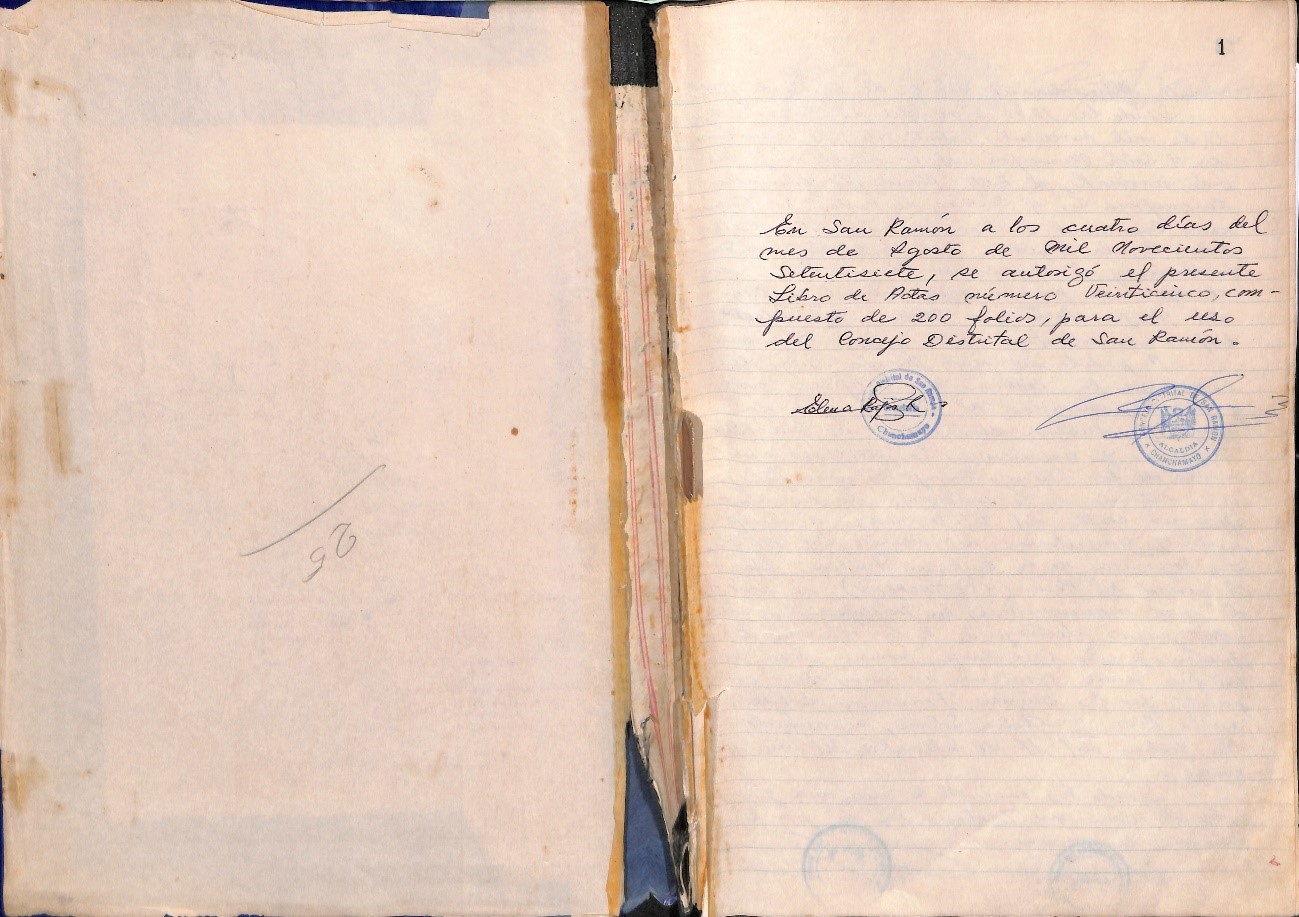 25
1
En San Ramón a los cuatro días del
mes de Agosto de Mil Novecientos
Setentisiete, se autorizó el presente
Libro de Actas número Veinticinco, com-
puesto de 200 folios, para el uso
del Concejo Distrital de San Ramón.
Elena Rojas
Distrital de San Ramón
Chanchamayo
DISTRITAL DE SAN RAMON
ALCALDIA
CHANCHAMAYO